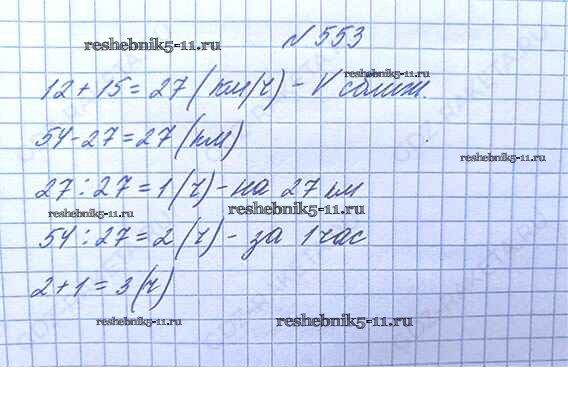 №553
reshebnik5-11.ru
12+15=27 (км/ч) - V сближ.
reshebnik5-11.ru
54-27=27 (км)
reshebnik5-11.ru
27:27=1 (ч) - на 27 км
reshebnik5-11.ru
reshebnik5-11.ru
54:27=2 (ч) - за 1 час
2+1=3 (ч)
reshebnik5-11.ru
reshebnik5-11.ru